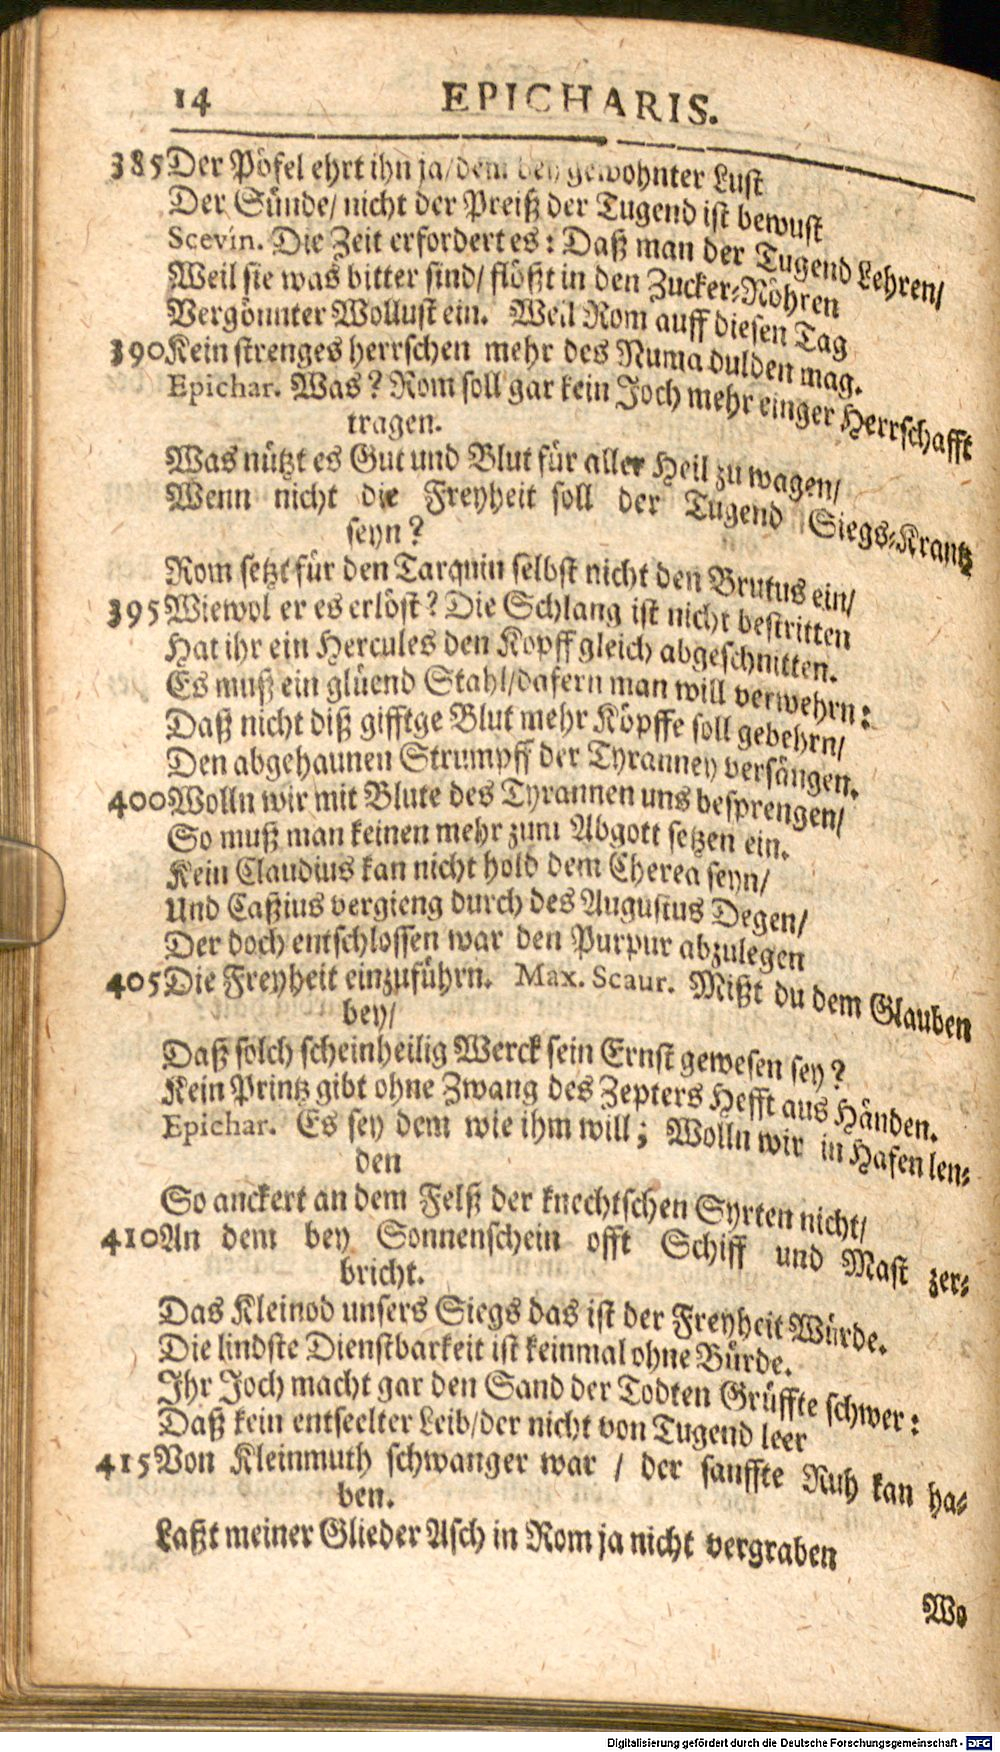 14 EPICHARIS.
385 Der Pöfel ehrt ihn ja/ dem bey gewohnter Lust
Der Sünde/ nicht der Preiß der Tugend ist bewust
Scevin. Die Zeit erfordert es: Daß man der Tugend Lehren/
Weil sie was bitter sind/ flößt in den Zucker-Röhren
Vergönnter Wollust ein. Weil Rom auff diesen Tag
390 Kein strenges herrschen mehr des Numa dulden mag.
Epichar. Was? Rom soll gar kein Joch mehr einger Herrschafft
tragen.
Was nützt es Gut und Blut für aller Heil zu wagen/
Wenn nicht die Freyheit soll der Tugend Siegs-Krantz
seyn?
Rom setzt für den Tarquin selbst nicht den Brutus ein/
395 Wiewol er es erlöst? Die Schlang ist nicht bestritten
Hat ihr ein Hercules den Kopff gleich abgeschnitten.
Es muß ein glüend Stahl/ dafern man will verwehrn:
Daß nicht diß gifftge Blut mehr Köpffe soll gebehrn/
Den abgehaunen Strumpff der Tyranney versängen.
400 Wolln wir mit Blute des Tyrannen uns besprengen/
So muß man keinen mehr zum Abgott setzen ein.
Kein Claudius kan nicht hold dem Cherea seyn/
Und Caßius vergieng durch des Augustus Degen/
Der doch entschlossen war den Purpur abzulegen
405 Die Freyheit einzuführn. Max. Scaur. Mißt du dem Glauben
bey/
Daß solch scheinheilig Werck sein Ernst gewesen sey?
Kein Printz gibt ohne Zwang des Zepters Hefft aus Händen.
Epichar. Es sey dem wie ihm will; Wolln wir in Hafen len-
den
So anckert an dem Felß der knechtschen Syrten nicht/
410 An dem bey Sonnenschein offt Schiff und Mast zer-
bricht.
Das Kleinod unsers Siegs das ist der Freyheit Würde.
Die lindste Dienstbarkeit ist keinmal ohne Bürde.
Ihr Joch macht gar den Sand der Todten Grüffte schwer:
Daß kein entseelter Leib/ der nicht von Tugend leer
415 Von Kleinmuth schwanger war / der sanffte Ruh kan ha-
ben.
Laßt meiner Glieder Asch in Rom ja nicht vergraben
Wo
Digitalisierung gefördert durch die Deutsche Forschungsgemeinschaft - DFG